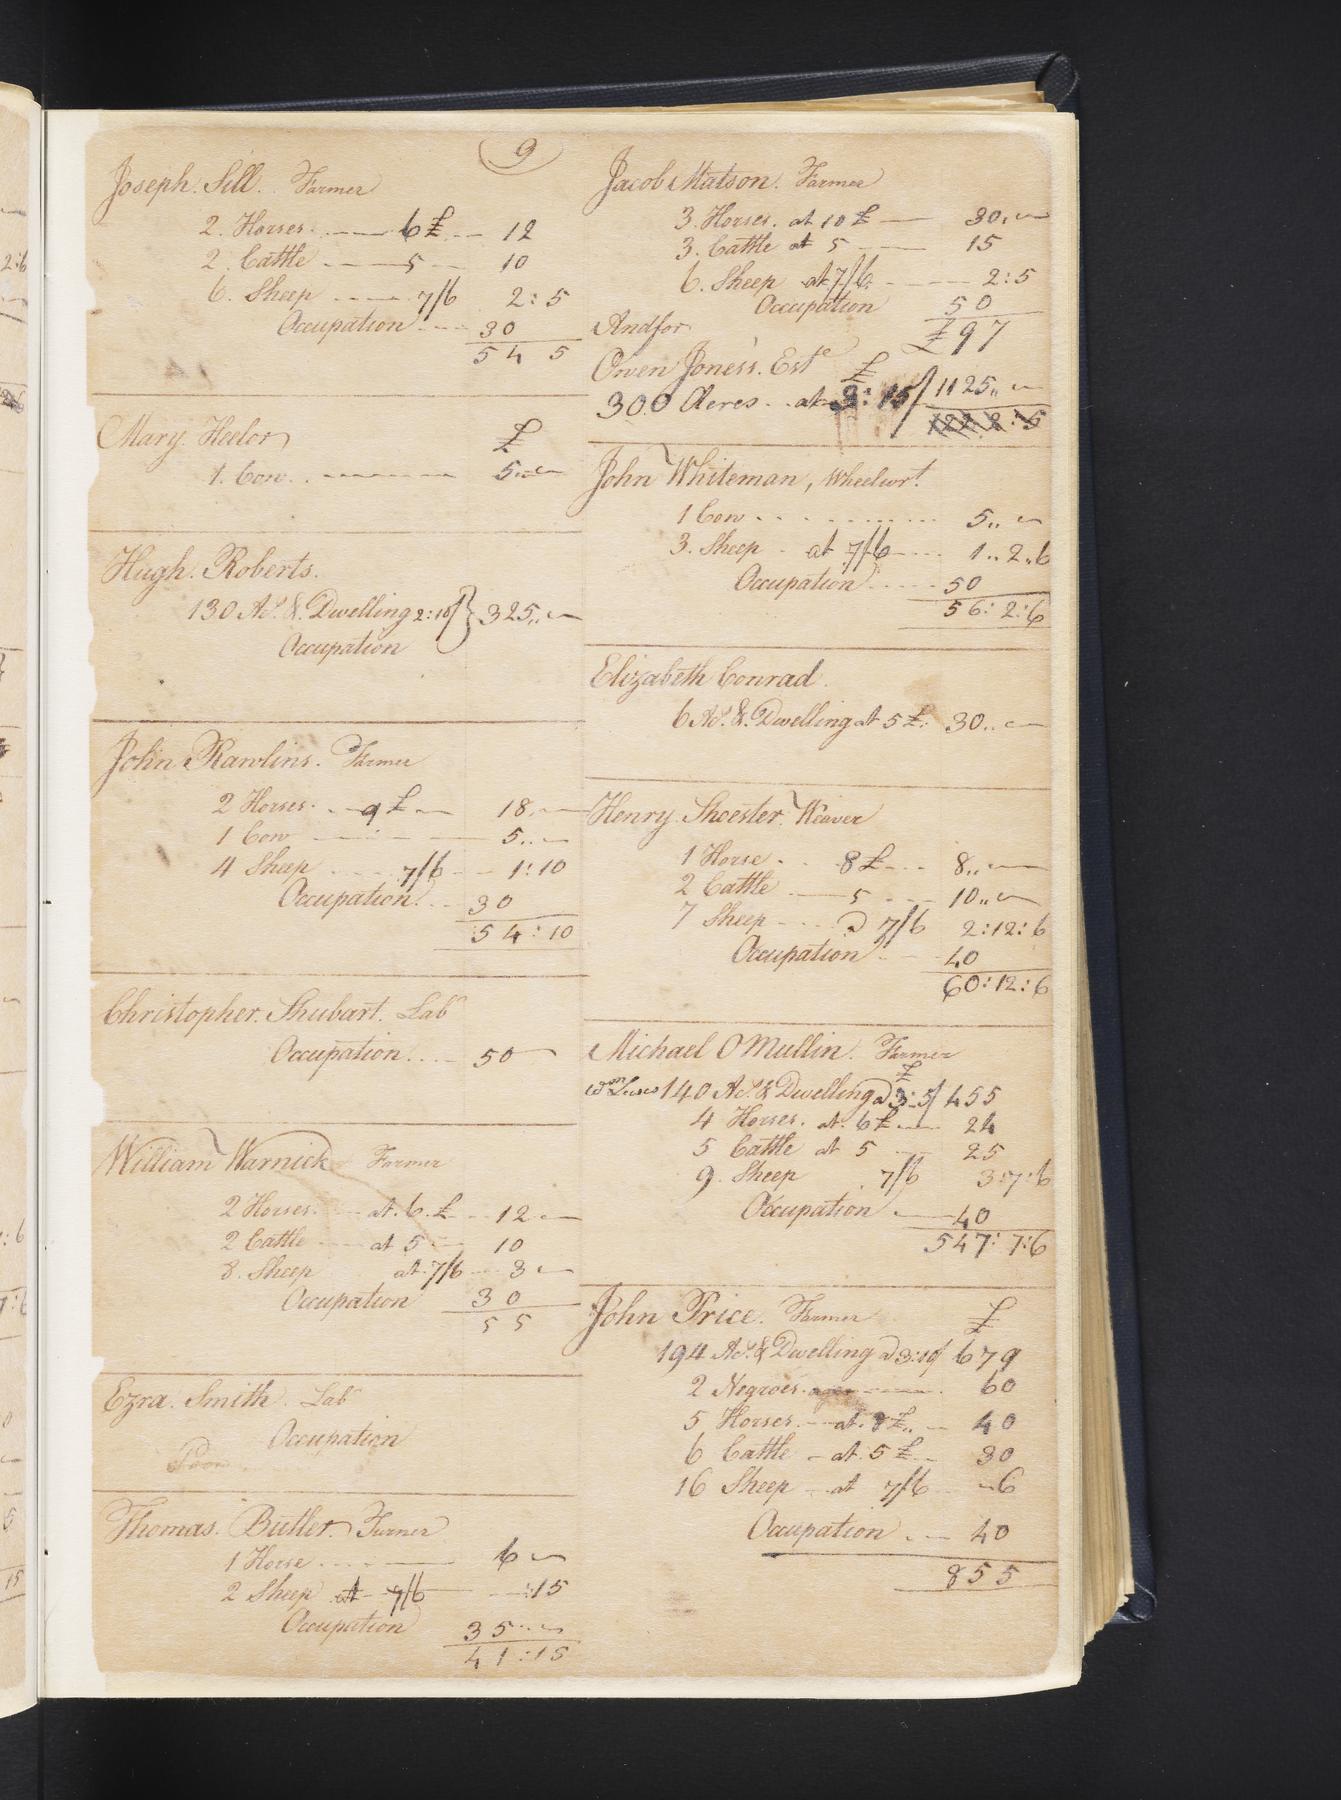 9
Joseph. Sill. Farmer
2. Horses. 6 £ 12
2. Cattle 5 10
6. Sheep 7/6 2:5
Occupation 30
54 5
Mary. Heelor £
1. Cow. 5
Hugh. Roberts.
130 As. & Dwelling 2:10/ } 325,,
Occupation
John Rawlins. Farmer
2 Horses. 9 £ 18
1 Cow 5
4 Sheep 7/6 1:10
Occupation. 30
54:10
Christopher. Shubart. Lab
Occupation 50
William Warnick Farmer
2 Horses. at. 6. £ 12
2 Cattle at 5 10
8. Sheep at. 7/6 3
Occupation 30
55
Ezra. Smith. Lab
Occupation
Poor
Thomas. Butler Turner
1 Horse 6
2 Sheep at 7/6 :15
Occupation 35
41:15
Jacob Matson. Farmer
3. Horses. at 10 £ 30
3. Cattle at 5 15
6. Sheep at 7/6. 2:5
Occupation 50
£97
And for
Owen Jones's. Este £
300 Acres. at 3:15/ 1125,,
John Whiteman, Wheelwrt.
1 Cow 5,,
3. Sheep at 7/6 1,,2,,6
Occupation 50
56:2:6
Elizabeth Conrad.
6 As. & Dwelling at 5 £. 30,,
Henry. Shoester. Weaver
1 Horse 8 £ 8,,
2 Cattle 5 10,,
7 Sheep @ 7/6 2:12:6
Occupation 40
60:12:6
Michael O Mullin. Farmer
£
Wm 140 As. & Dwelling @ 3:5/ 455
4 Horses. at. 6 £ 24
5 Cattle at 5 25
9. Sheep 7/6 3:7:6
Occupation 40
547:7:6
John Price. Farmer £
194 As. & Dwelling @ 3:10/ 679
2 Negroes. 60
5 Horses. at. 8 £,, 40
6 Cattle at. 5 £ 30
16 Sheep at 7/6 6
Occupation 40
855